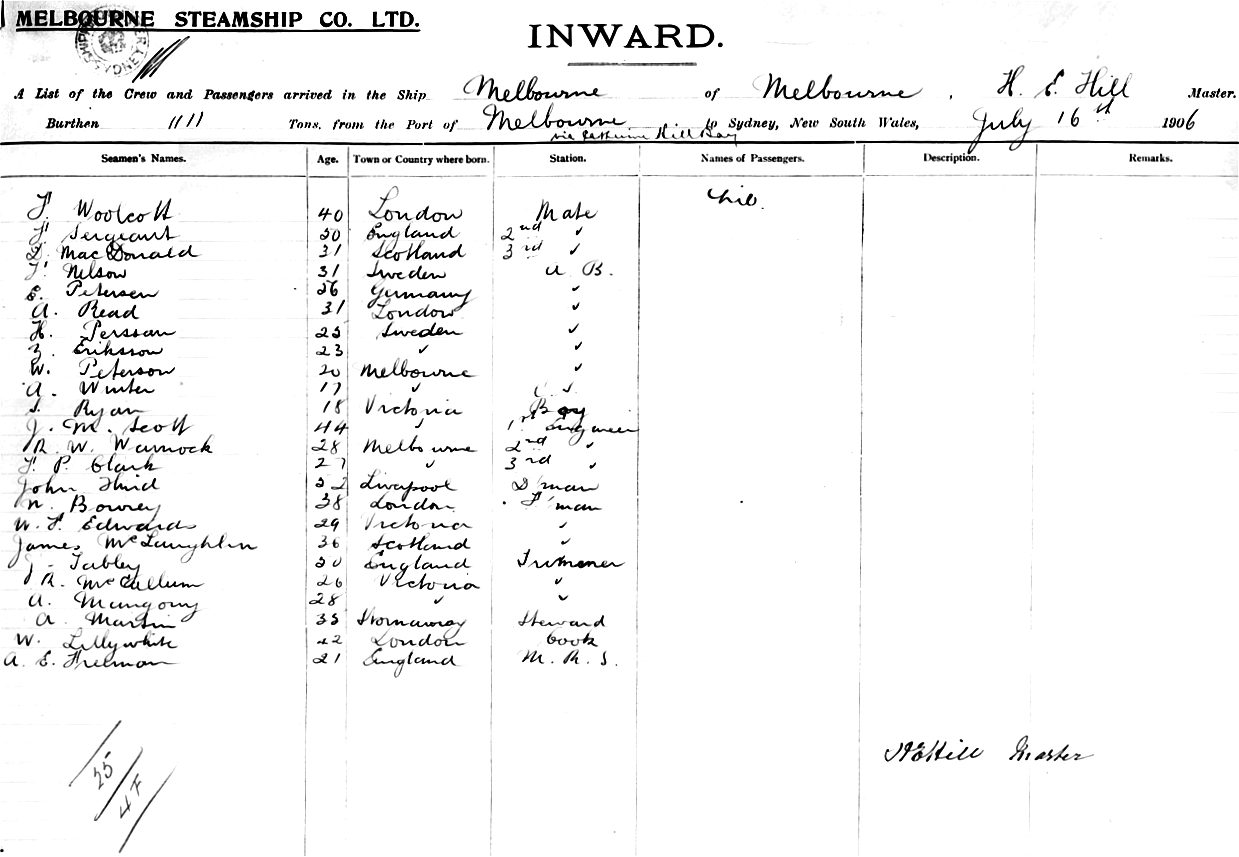 MELBOURNE STEAMSHIP CO. LTD.
INWARD.
A List of the Crew and Passengers arrived in the Ship Melbourne of Melbourne, H. E. Hill Master.
Burthen 1111 Tons, from the Port of Melbourne to Sydney, New South Wales, July 16th 1906
via Catherine Hill Bay
Seamen's Names. Age. Town or Country where born. Station. Names of Passengers. Description. Remarks.
F. Woolcott 40 London Mate Nil.
F. Sergeant 50 England 2nd "
D. MacDonald 31 Scotland 3rd "
F. Nelson 31 Sweden A B.
E. Petersen 56 Germany "
A. Read 31 London "
H. Persson 25 Sweden "
Z. Eriksson 23 " "
W. Peterson 20 Melbourne "
A. Winter 17 " O. S.
Ryan 18 Victoria Boy
J. M. Scott 44 " 1st Engineer
R. W. Warnock 28 Melbourne 2nd "
F. P. Clark 27 " 3rd "
John Hind 52 Liverpool D'man
N. Bowrey 38 London F'man
W. F. Edwards 29 Victoria "
James McLaughlin 36 Scotland "
J. Tabley 50 England Trimmer
R. McCallum 26 Victoria "
A. 28 " "
A. Martin 35 Stornaway Steward
W. Lillywhite 42 London Cook
A. E. Freeman 21 England M. R. S.
H E Hill Master
25
4 F